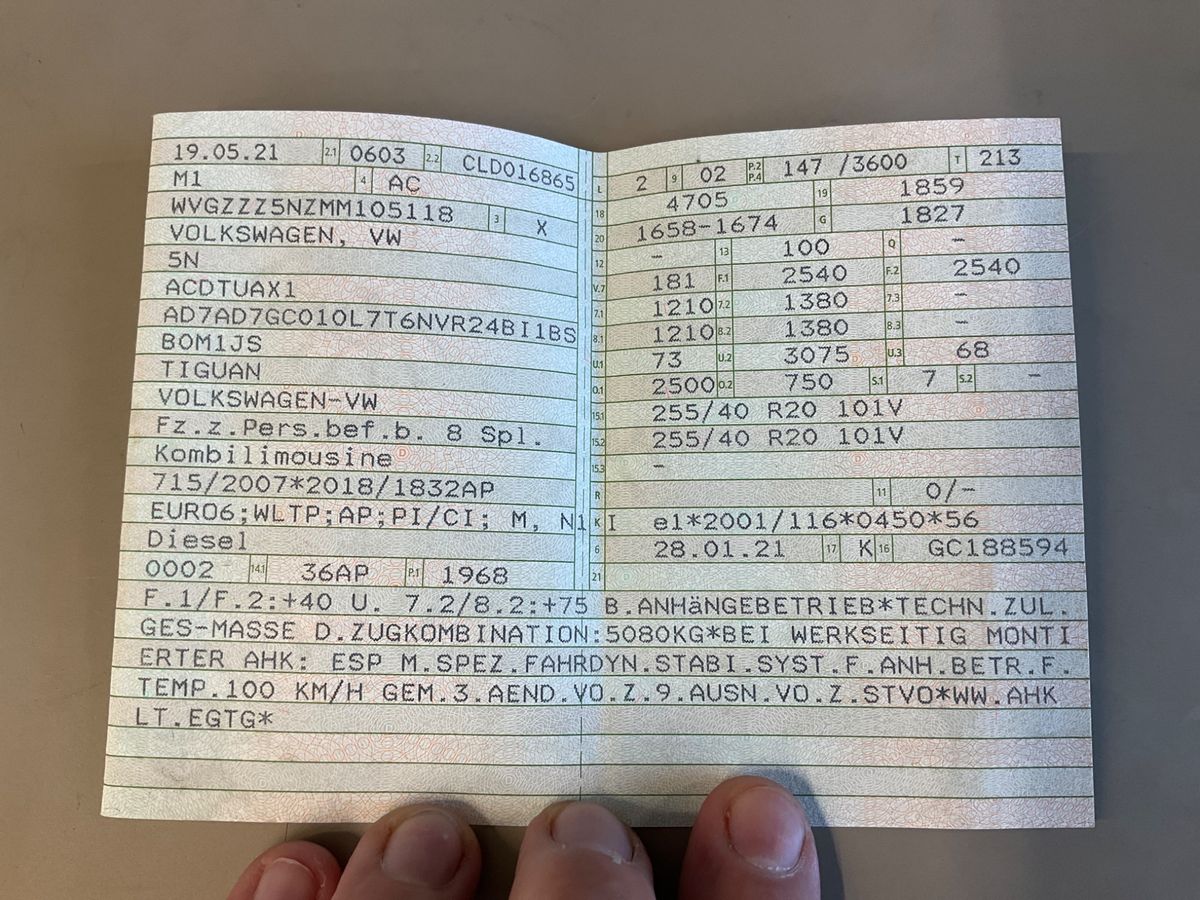 19.05.21 2.1 0603 2.2 CLD016865
M1 4 AC
WVGZZZ5NZMM105118 3 X
VOLKSWAGEN, VW
5N
ACDTUAX1
AD7AD7GC010L7T6NVR24BI1BS
BOM1JS
TIGUAN
VOLKSWAGEN-VW
Fz.z.Pers.bef.b. 8 Spl.
Kombilimousine
715/2007*2018/1832AP
EURO6;WLTP;AP;PI/CI; M, N1 I
Diesel
0002 14.1 36AP P.1 1968
L 2 9 02 P.2 P.4 147 /3600 T 213
18 4705 19 1859
20 1658-1674 G 1827
12 - 13 100 Q -
V.7 181 F.1 2540 F.2 2540
7.1 1210 7.2 1380 7.3 -
8.1 1210 8.2 1380 8.3 -
U.1 73 U.2 3075 U.3 68
O.1 2500 O.2 750 S.1 7 S.2 -
15.1 255/40 R20 101V
15.2 255/40 R20 101V
15.3 -
R 11 0/-
K e1*2001/116*0450*56
6 28.01.21 17 K 16 GC188594
21
F.1/F.2:+40 U. 7.2/8.2:+75 B.ANHäNGEBETRIEB*TECHN.ZUL.
GES-MASSE D.ZUGKOMBINATION:5080KG*BEI WERKSEITIG MONTI
ERTER AHK: ESP M.SPEZ.FAHRDYN.STABI.SYST.F.ANH.BETR.F.
TEMP.100 KM/H GEM.3.AEND.VO.Z.9.AUSN.VO.Z.STVO*WW.AHK
LT.EGTG*